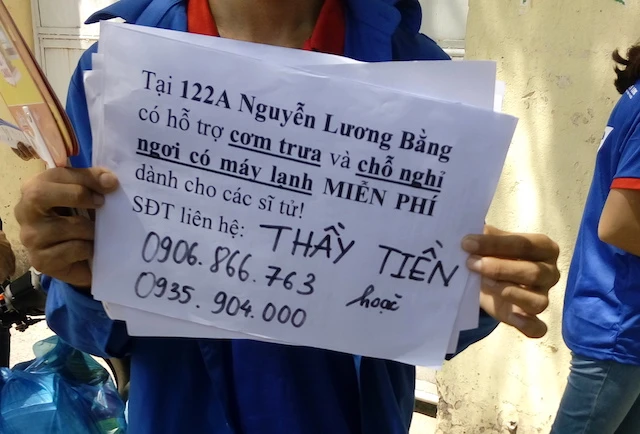 Tại 122A Nguyễn Lương Bằng
có hỗ trợ cơm trưa và chỗ nghỉ
ngơi có máy lạnh MIỄN PHÍ
dành cho các sĩ tử!
SĐT liên hệ: THẦY TIẾN
0906.866.763 hoặc
0935.904.000